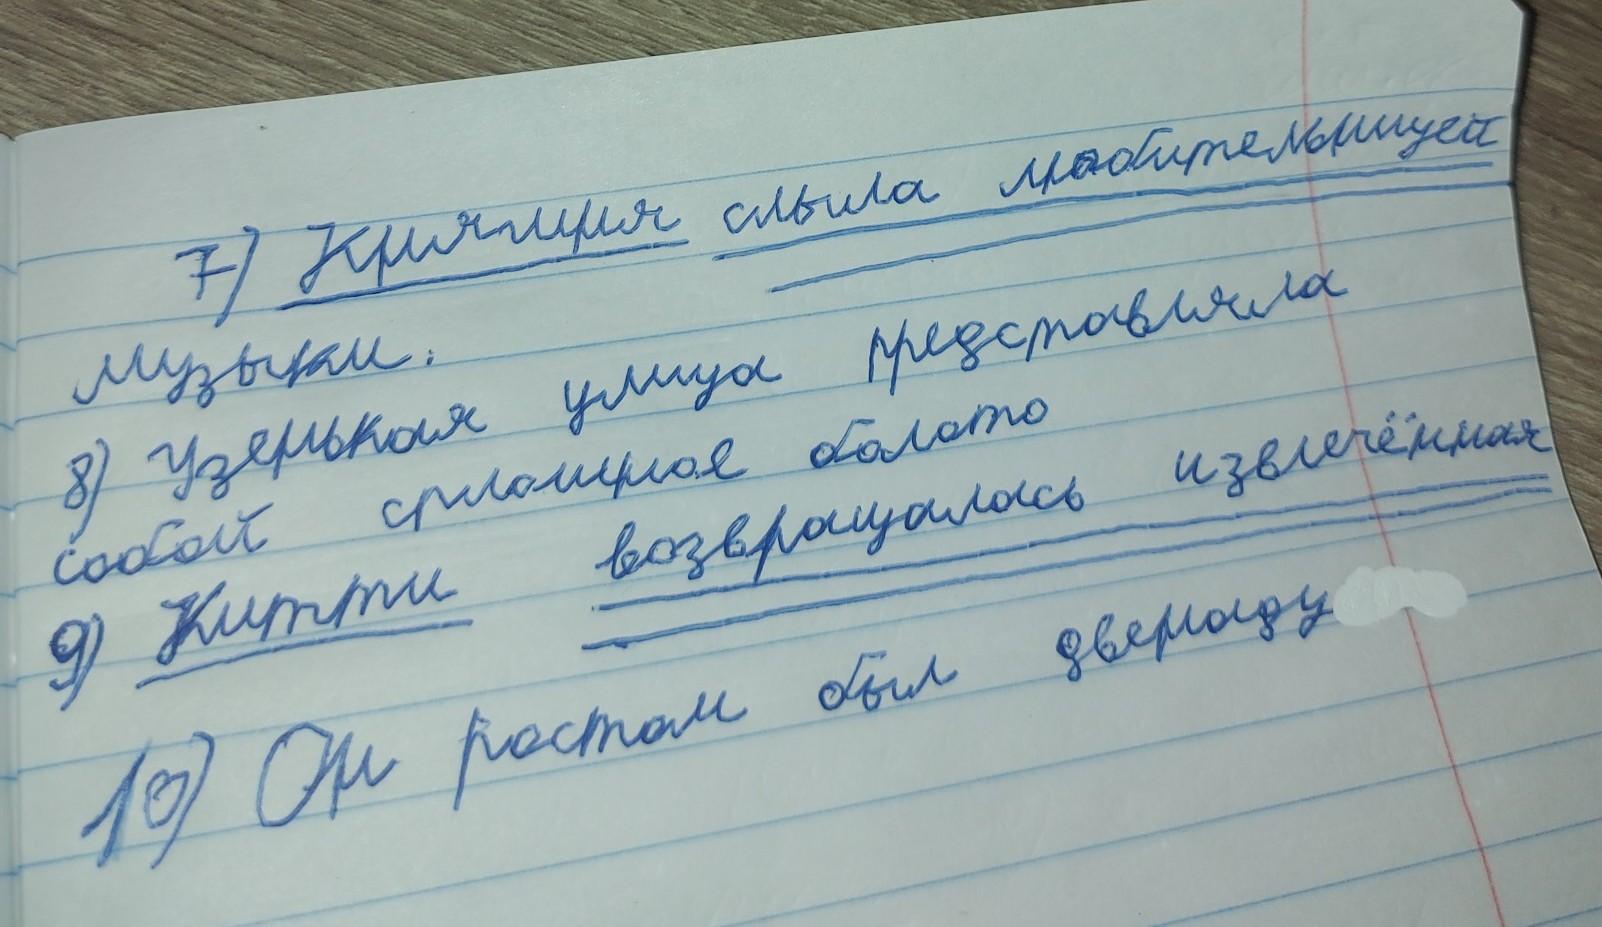 7) Княгиня слыла любительницей
музыки.
8) Узенькая улица представляла
собой сплошное болото
9) Китти возвращалась извлечённая
10) Он ростом был